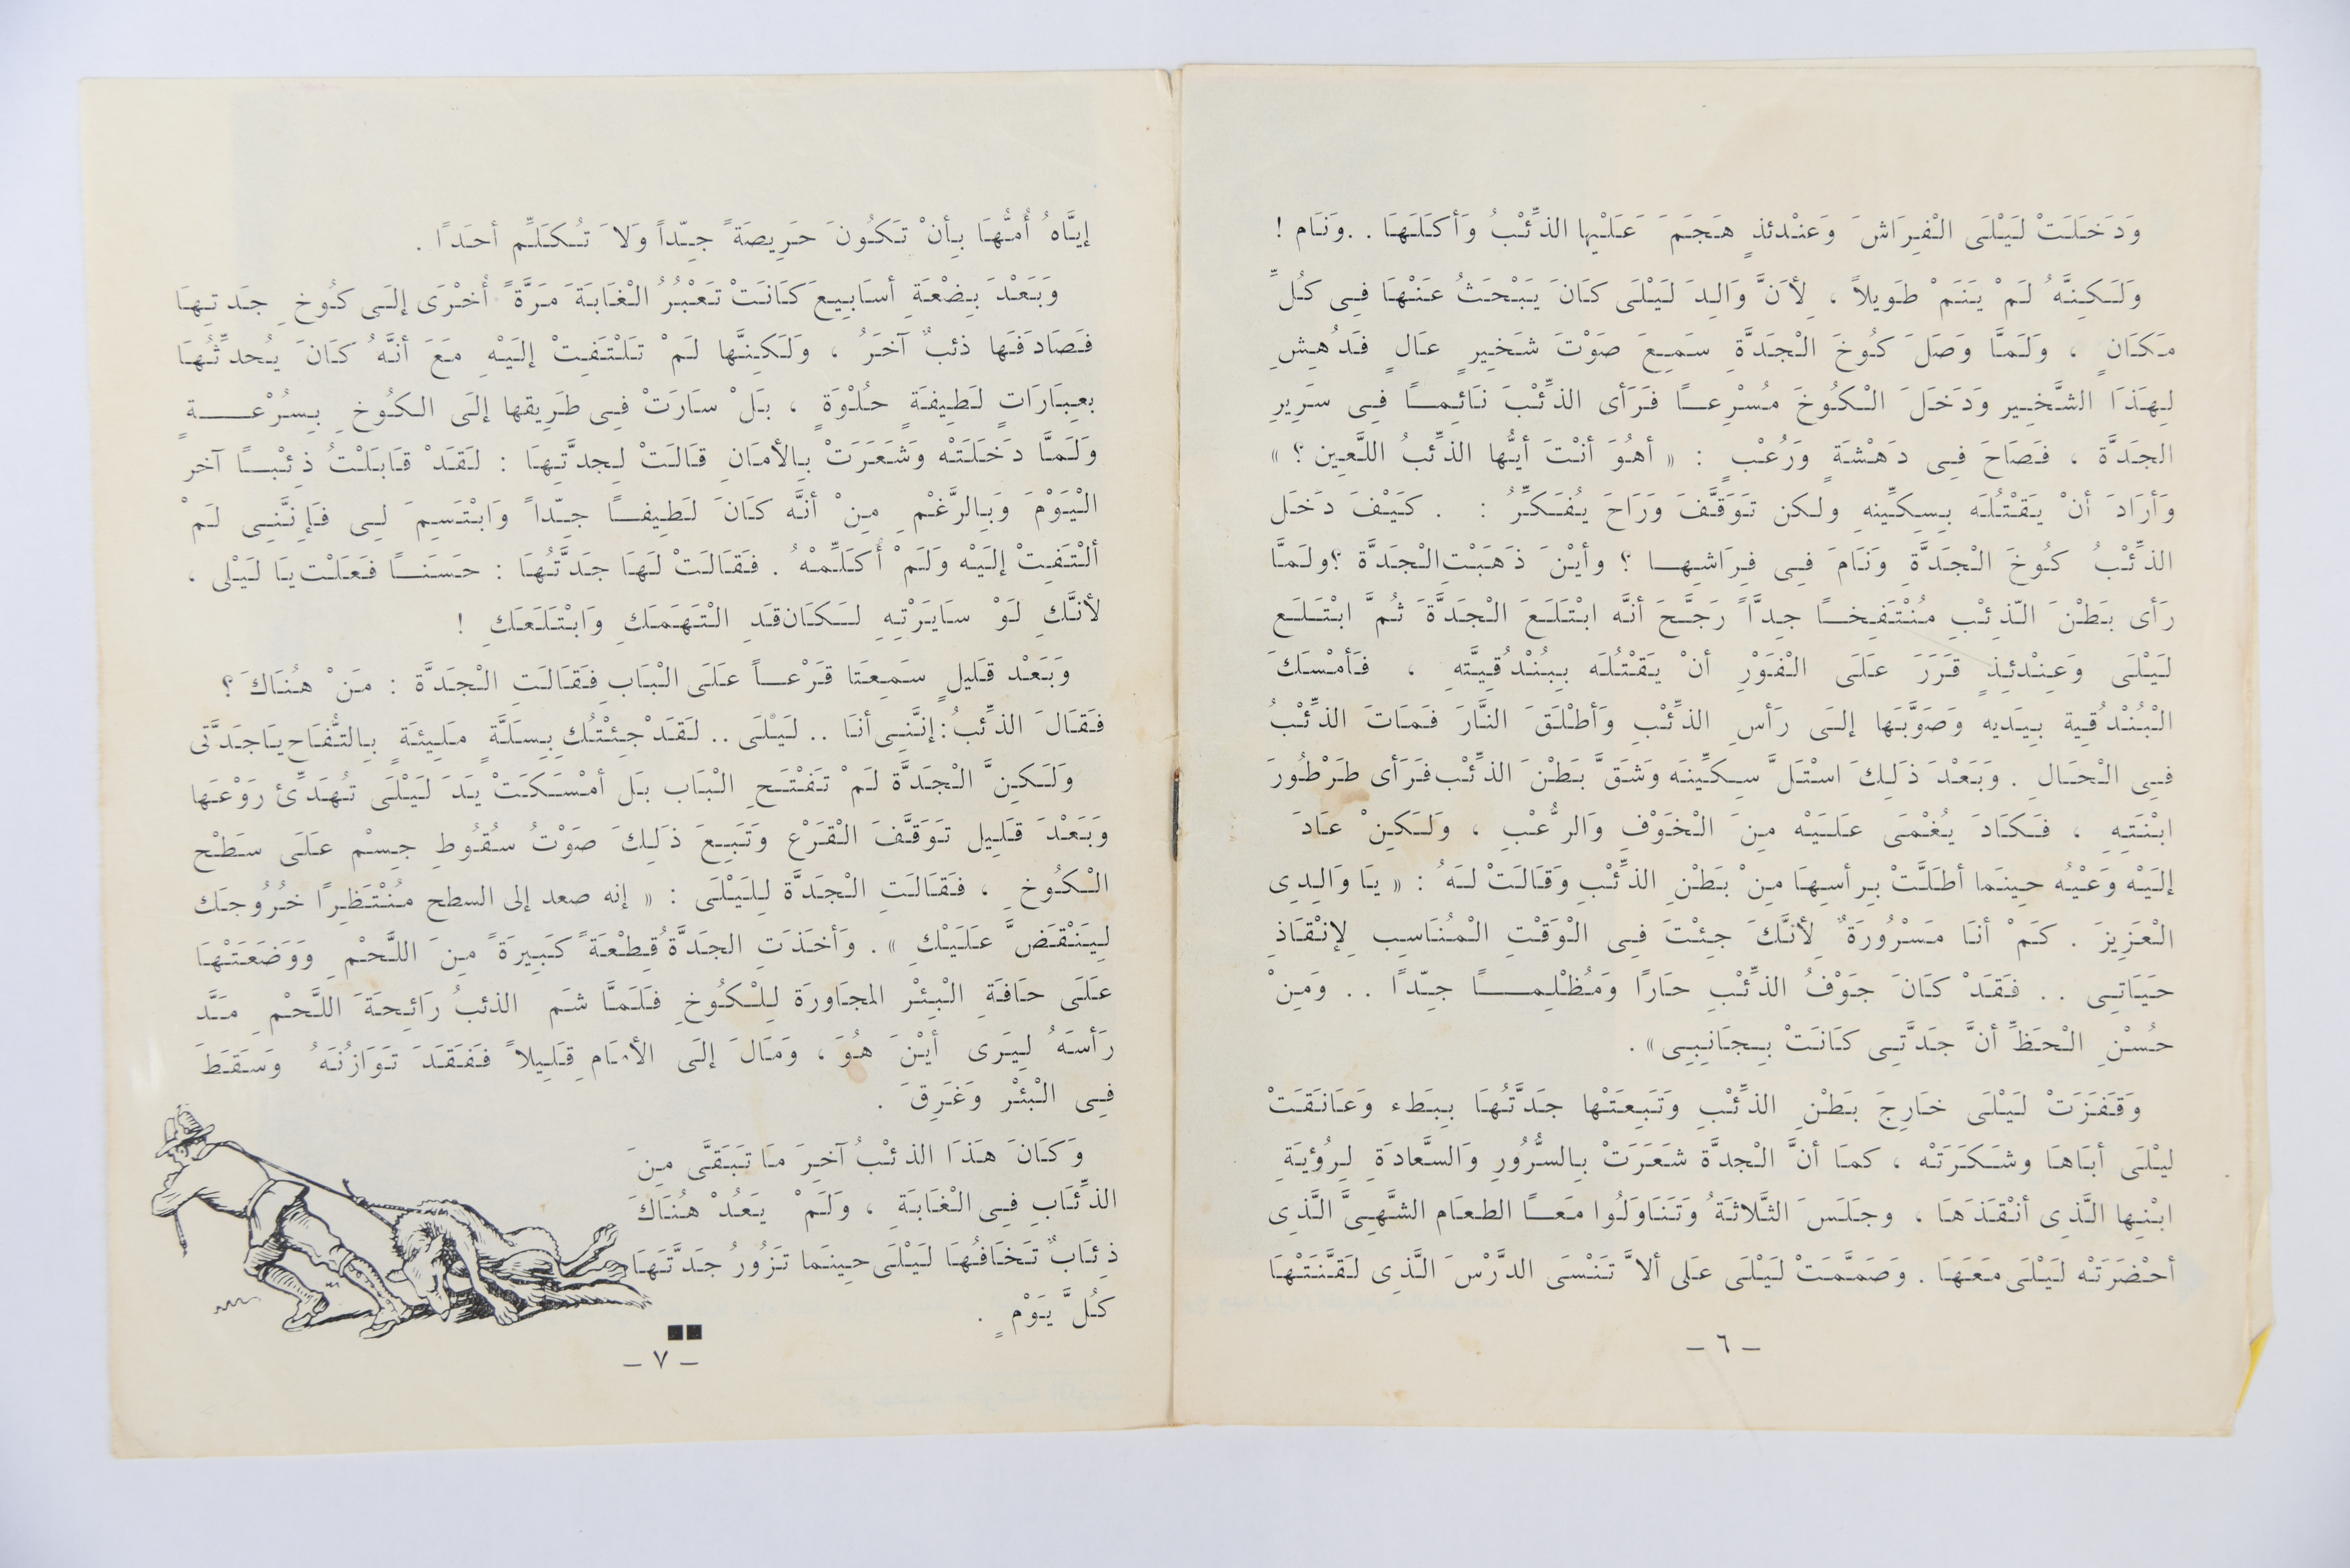 وَدَخَلَتْ لَيْلَى الْفِرَاشَ وَعنْدئذٍ هَجَمَ عَلَيْها الذِّئْبُ وَأكَلَهَا . . وَنَام !
وَلَكِنَّهُ لَمْ يَنَمْ طَوِيلاً ، لِأَنَّ وَالِدَ لَيْلَى كَانَ يَبْحَثُ عَنْهَا فِى كُلِّ
مَكَانٍ ، وَلَمَّا وَصَلَ كُوخَ الْجَدَّةِ سَمِعَ صَوْتَ شَخِيرٍ عَالٍ فَدُهِشِ
لِهَذَا الشَّخِير وَدَخَلَ الْكُوخَ مُسْرِعًا فَرَأى الذِّئْبَ نَائِمًا فِى سَرِيرِ
الجَدَّة ، فَصَاحَ فِى دَهْشَةٍ وَرُعْبٍ : « أهُوَ أنْتَ أيُّها الذِّئبُ اللَّعِين ؟ »
وَأرَادَ أنْ يَقْتُلَه بِسِكِّينِهِ ولكن تَوَقَّفَ وَرَاحَ يُفَكِّرُ : . كَيْفَ دَخَل
الذِّئْبُ كُوخَ الْجَدَّةِ وَنَامَ فِى فِرَاشِهَا ؟ وأيْنَ ذَهَبَتْ الْجَدَّة ؟ ولَمَّا
رَأى بَطْنَ الّذِئْبِ مُنْتَفِخًا جِدًّا رَجَّحَ أنَّه ابْتَلَعَ الْجَدَّةَ ثُمَّ ابْتَلَع
لَيْلَى وَعِنْدئِذٍ قَرَرَ عَلَى الْفَوْرِ أنْ يَقْتُلَه بِبُنْدُقِيَّتهِ ، فَأمْسَكَ
الْبُنْدُقِية بِيَديه وَصَوَّبَها إلَى رَأسِ الذِّئْبِ وَأطْلَقَ النَّارَ فَمَاتَ الذِّئْبُ
فِى الْحَالِ . وَبَعْدَ ذَلِكَ اسْتَلَّ سِكِّينَه وَشَقَّ بَطْنَ الذِّئْبْ فَرَأى طَرْطُورَ
ابْنَتِهِ ، فَكَادَ يُغْمَى عَلَيْه مِنَ الْخَوْفِ وَالرُّعْبِ ، وَلَكِنْ عَادَ
إلَيْه وَعْيُه حِينَما أطَلَّتْ بِرأسِهَا مِنْ بَطْنِ الذِّئْبِ وَقَالَتْ لَهُ : « يَا وَالِدِى
الْعَزِيزَ . كَمْ أنَا مَسْرُورَةٌ لِأنَّكَ جِئْتَ فِى الْوَقْتِ الْمُنَاسِبِ لِإنْقَاذِ
حَيَاتِى . . فَقَدْ كَانَ جَوْفُ الذِّئْبِ حَارًا وَمُظْلِمًا جِدّاً . . وَمِنْ
حُسْنِ الْحَظِّ أنَّ جَدَّتِى كَانَتْ بِجَانِبِى » .
وَقَفَزَتْ لَيْلَى خَارِجَ بَطْنِ الذِّئْبِ وَتَبِعَتْها جَدَّتُهَا بِبَطء وَعَانَقَتْ
ليْلَى أبَاهَا وشَكَرَتْه ، كمَا أنَّ الْجدَّة شَعَرَتْ بِالسُّرُورِ وَالسَّعَادَةِ لِرُؤيَةِ
ابْنِها الَّذِى أنْقَذَهَا ، وجَلَسَ الثَّلاثَةُ وَتَنَاوَلُوا مَعًا الطعَام الشَّهِىَّ الَّذِى
أحْضَرَتْه لَيْلَى مَعَهَا . وَصَمَّمَتْ لَيْلَى عَلى ألاَّ تَنْسَى الدَّرْسَ الَّذِى لَقَّنَتْهَا
– ٦ –
إيَّاهُ أُمُّهَا بِأنْ تَكُونَ حَرِيصَةً جِدّاً وَلاَ تُكَلِّم أحَدًا .
وَبَعْدَ بِضْعَةِ أسَابِيعَ كَانَتْ تَعْبُرُ الْغَابَةَ مَرَّةً أُخْرَى إلَى كُوخِ جَدتِهَا
فَصَادَفَها ذئبٌ آخَرُ ، وَلَكِنَّها لَمْ تَلْتَفِتْ إلَيْهِ مَعَ أنَّهُ كَانَ يُحدِّثُهَا
بعِبَارَاتٍ لَطِيفَةٍ حُلْوَةٍ ، بَلْ سَارَتْ فِى طَرِيقها إلَى الكُوخِ بِسُرْعَةٍ
وَلَمَّا دَخَلَتْه وَشَعَرَتْ بِالأمَانِ قَالَتْ لِجدَّتِهَا : لَقَدْ قَابَلْتُ ذِئْبًا آخر
الْيَوْمَ وَبِالرَّغْمِ مِنْ أنَّه كَانَ لَطِيفًا جِدّاً وَابْتَسِمَ لِى فَإنَّنِى لَمْ
ألْتَفِتْ إلَيْه وَلَمْ أُكَلِّمْهُ . فَقَالَتْ لَهَا جَدَّتُهَا : حَسَنًا فَعَلْت يَا لَيْلى ،
لأنَّكِ لَوْ سَايَرْتِهِ لَكَان قَدِ الْتَهَمَكِ وَابْتَلَعَكِ !
وَبَعْد قَليلٍ سَمِعَتَا قَرْعاً عَلَى الْبَابِ فَقَالَتِ الْجَدَّة : مَنْ هُنَاكَ ؟
فَقَالَ الذِّئبُ : إنَّنِى أنَا . . لَيْلَى . . لَقَدْ جِئْتُكِ بِسِلَّةٍ مَلِيئَةٍ بِالتُّفَاحِ يَاجَدَّتى
وَلَكِنَّ الْجَدَّة لَمْ تَفْتَحِ الْبَاب بَل أمْسَكَتْ يَدَ لَيْلَى تُهَدِّئ رَوْعَها
وَبَعْدَ قَلِيل تَوَقَّفَ الْقَرْع وَتَبِعَ ذَلِكَ صَوْتُ سُقُوطِ جِسْم عَلَى سَطْح
الْكُوخِ ، فَقَالَتِ الْجَدَّة لِلَيْلَى : « إنه صعد إلى السطح مُنْتَظِرًا خُرُوجَك
لِيَنْقَضَّ عَلَيْكِ » . وَأخَذَتِ الجَدَّةُ قِطْعَةً كَبِيرَةً مِنَ اللَّحْمِ وَوَضَعَتْهَا
عَلَى حَافَةِ الْبِئْر المجَاورَة لِلْكُوخِ فَلَمَّا شَم الذئبُ رَائِحَةَ اللَّحْمِ مَدَّ
رَأسَهُ لِيَرى أيْنَ هُوَ ، وَمَالَ إلَى الأمَامِ قِلِيلاً فَفَقَدَ تَوَازُنَهُ وَسَقَطَ
فِى الْبئْرِ وَغَرِقَ .
وَكَانَ هَذَا الذئْبُ آخِرَ مَا تَبَقَّى مِنَ
الذِّئَابِ فِى الْغَابَةِ ، وَلَمْ يَعُدْ هُنَاكَ
ذِئَابٌ تَخَافُهَا لَيْلَى حِينَما تَزُورُ جَدَّتَهَا
كُلَّ يَوْمٍ .
– ٧ –